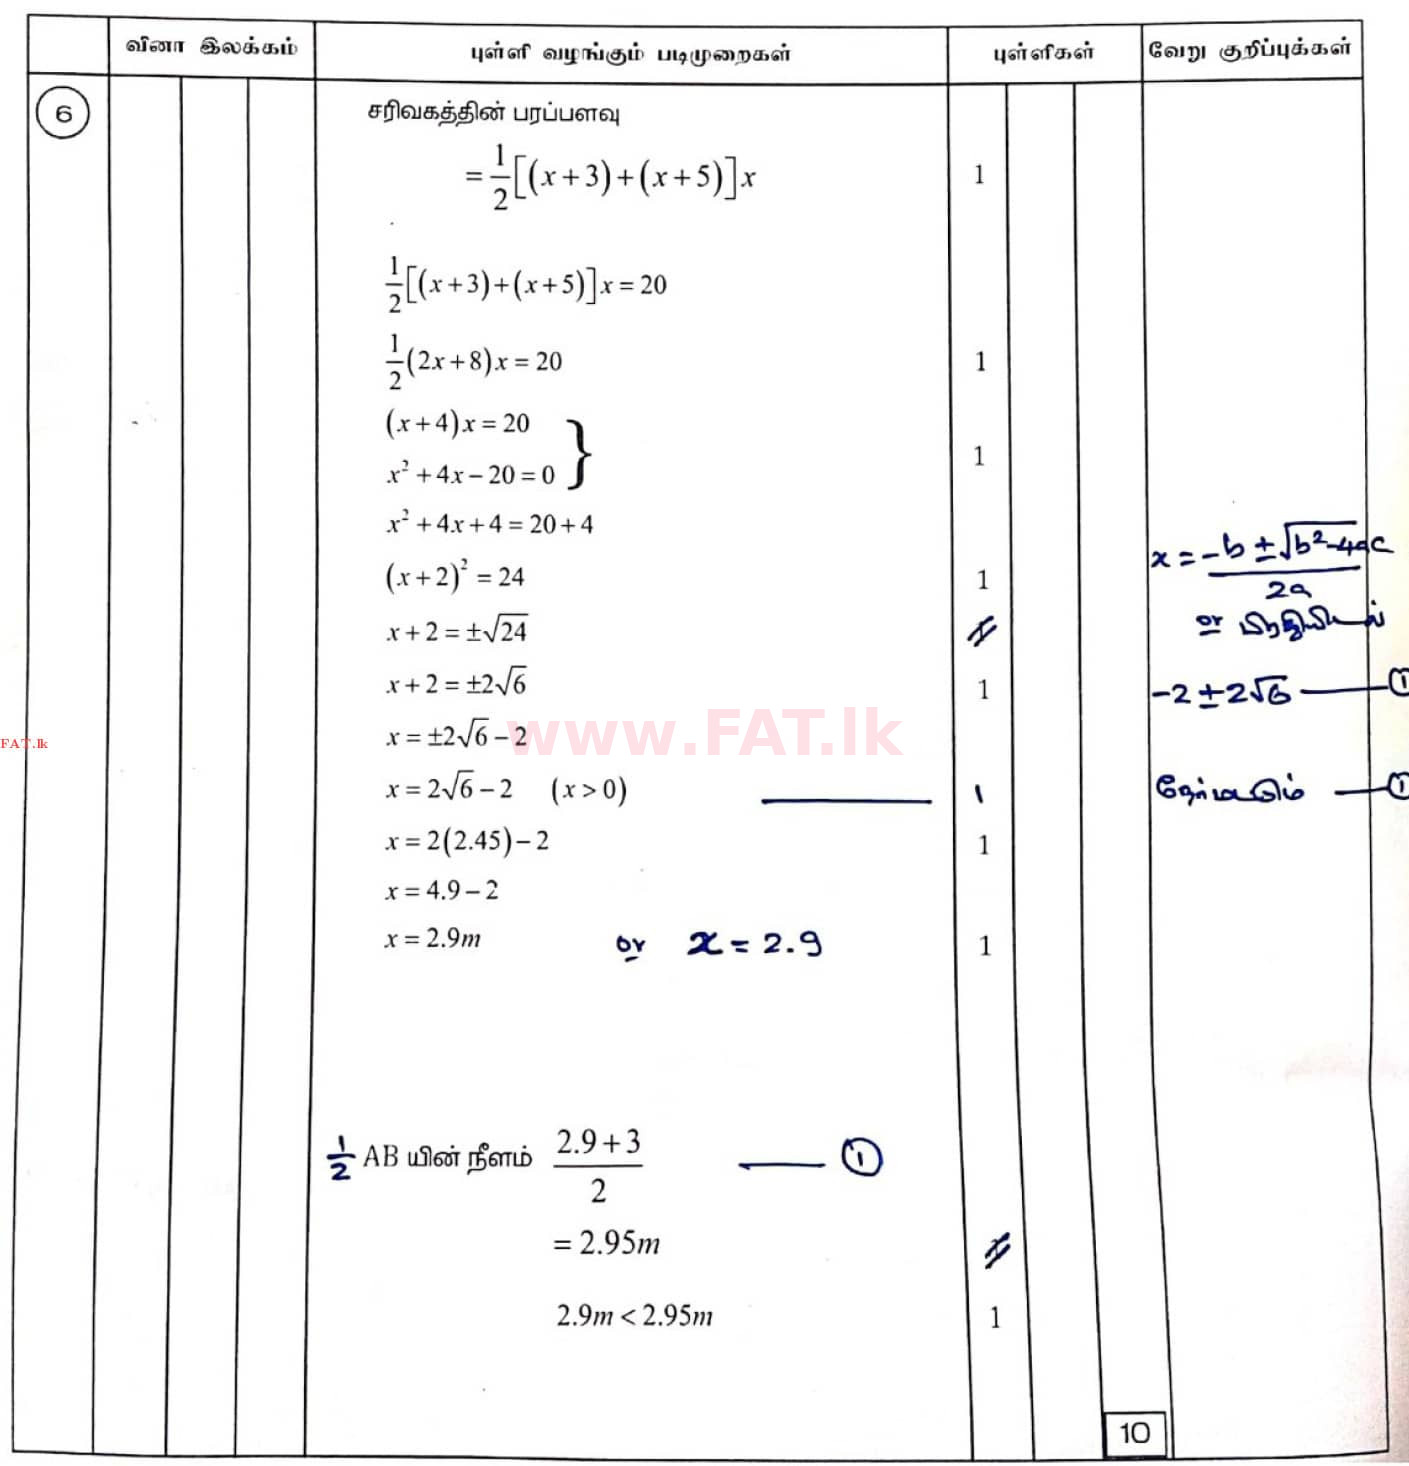 வினா இலக்கம் புள்ளி வழங்கும் படிமுறைகள் புள்ளிகள் வேறு குறிப்புக்கள்
6 சரிவகத்தின் பரப்பளவு
= 1/2 [(x+3)+(x+5)] x 1
1/2 [(x+3)+(x+5)] x = 20
1/2 (2x+8) x = 20 1
(x+4) x = 20
x² + 4x − 20 = 0 } 1
x² + 4x + 4 = 20 + 4
(x+2)² = 24 1 x = −b ± √b²−4ac / 2a
x + 2 = ±√24 or
x + 2 = ±2√6 1 −2 ± 2√6 — 1
x = ±2√6 − 2
x = 2√6 − 2 (x > 0) — 1 — 1
x = 2(2.45) − 2 1
x = 4.9 − 2
x = 2.9m or x = 2.9 1
1/2 AB யின் நீளம் 2.9 + 3 / 2 — 1
= 2.95m
2.9m < 2.95m 1
10
www.FAT.lk
FAT.lk